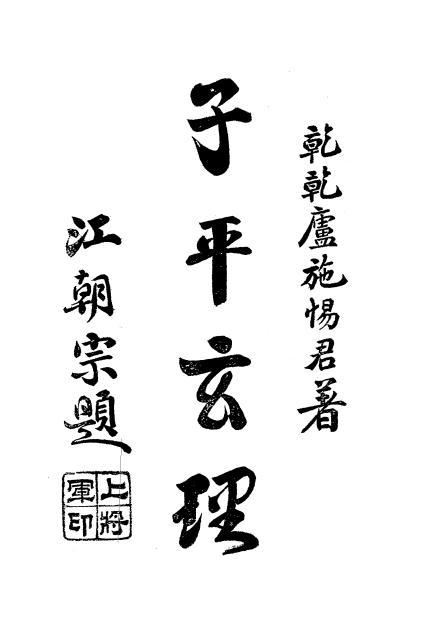 乾乾廬施惕君著
子平玄理
江朝宗題
上將
軍印